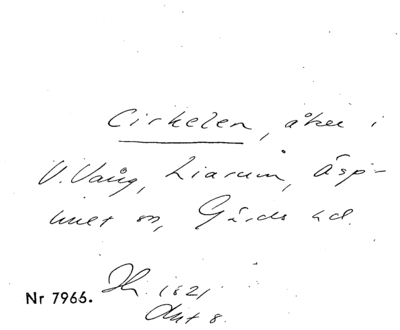 Cirkelen, åker i
V. Vång, Liarum, Äsp-
hult sn, Gärds hd.
Nr 7966. Sk. 1821
Akt 8.